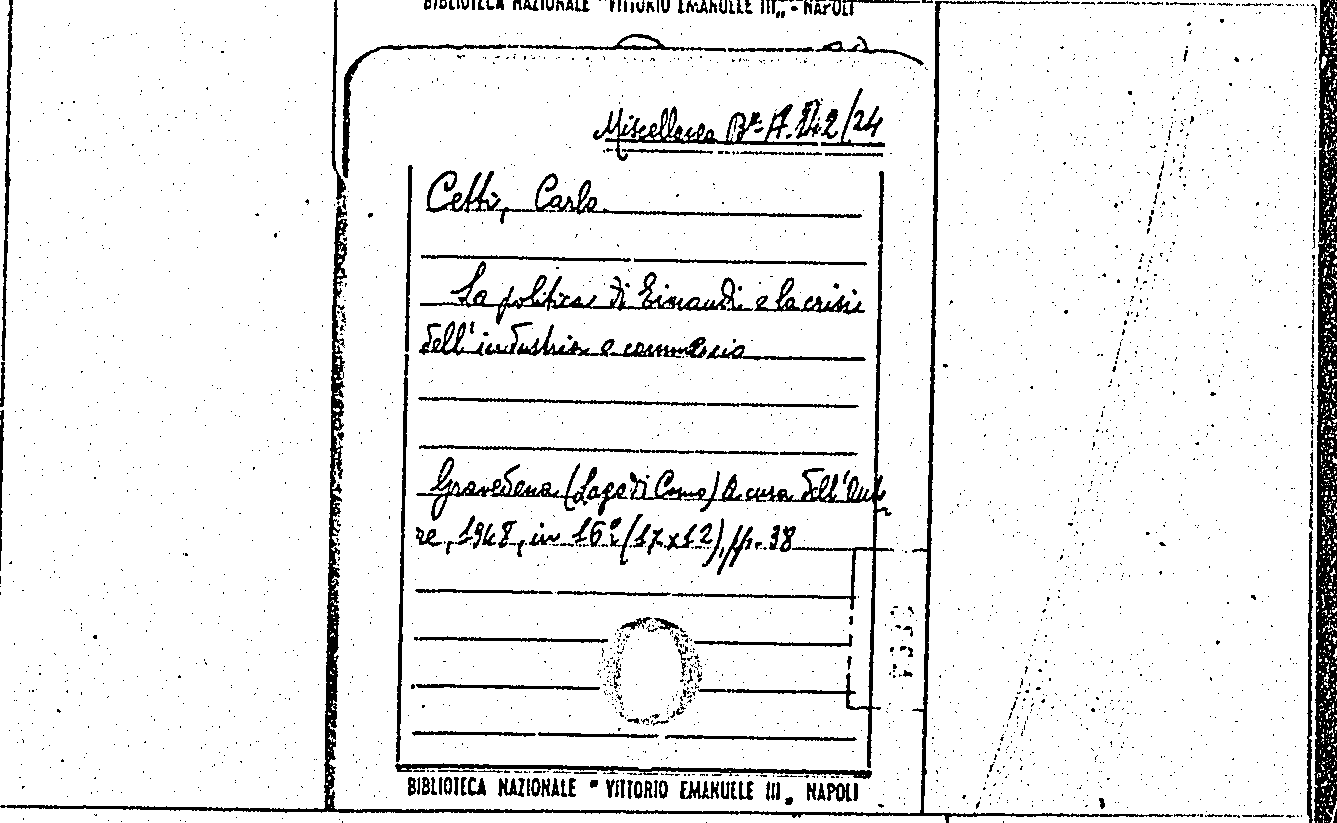 BIBLIOTECA NAZIONALE "VITTORIO EMANUELE III„ - NAPOLI
Miscellanea Bª A. 142/24
Cetti, Carlo.
La politica di Einaudi e la crisi
dell'industria e commercio
Gravedona (Lago di Como) A cura dell'Auto-
re, 1948, in 16º (17x12), pp. 38
BIBLIOTECA NAZIONALE " VITTORIO EMANUELE III „ NAPOLI